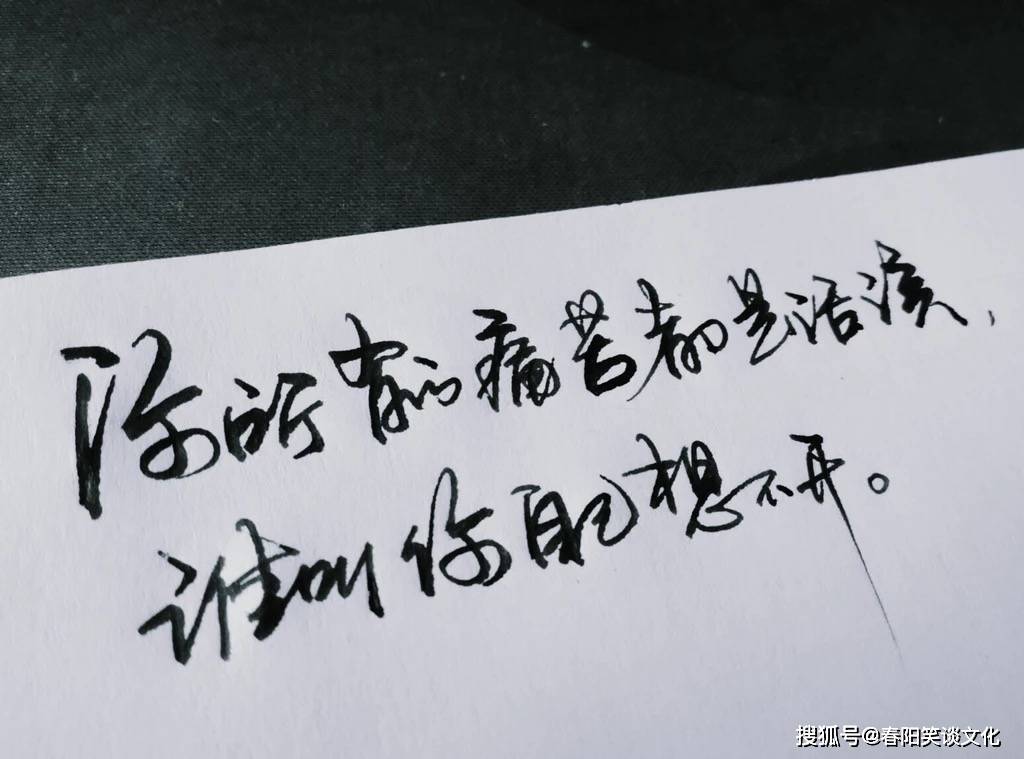 你所有的痛苦都是活该,
谁叫你自己想不开。
搜狐号@春阳笑谈文化